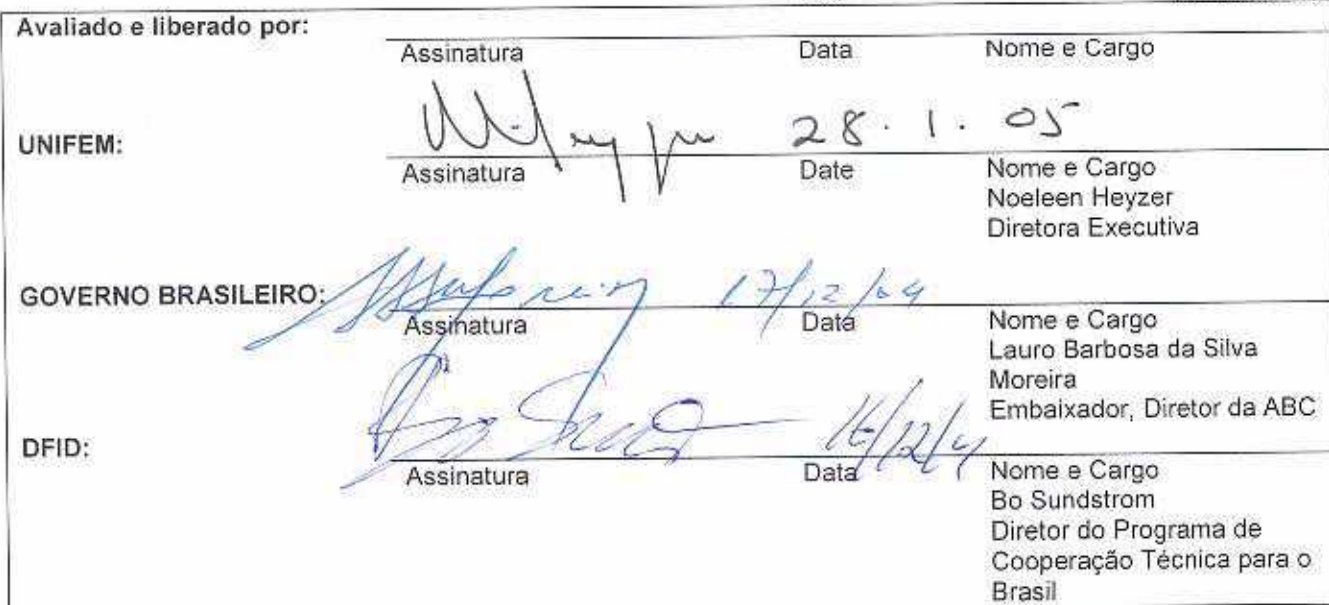 Avaliado e liberado por:
Assinatura Data Nome e Cargo
28.1.05
UNIFEM:
Assinatura Date Nome e Cargo
Noeleen Heyzer
Diretora Executiva
17/12/04
GOVERNO BRASILEIRO:
Assinatura Data Nome e Cargo
Lauro Barbosa da Silva
Moreira
Embaixador, Diretor da ABC
16/12/4
DFID:
Assinatura Data Nome e Cargo
Bo Sundstrom
Diretor do Programa de
Cooperação Técnica para o
Brasil